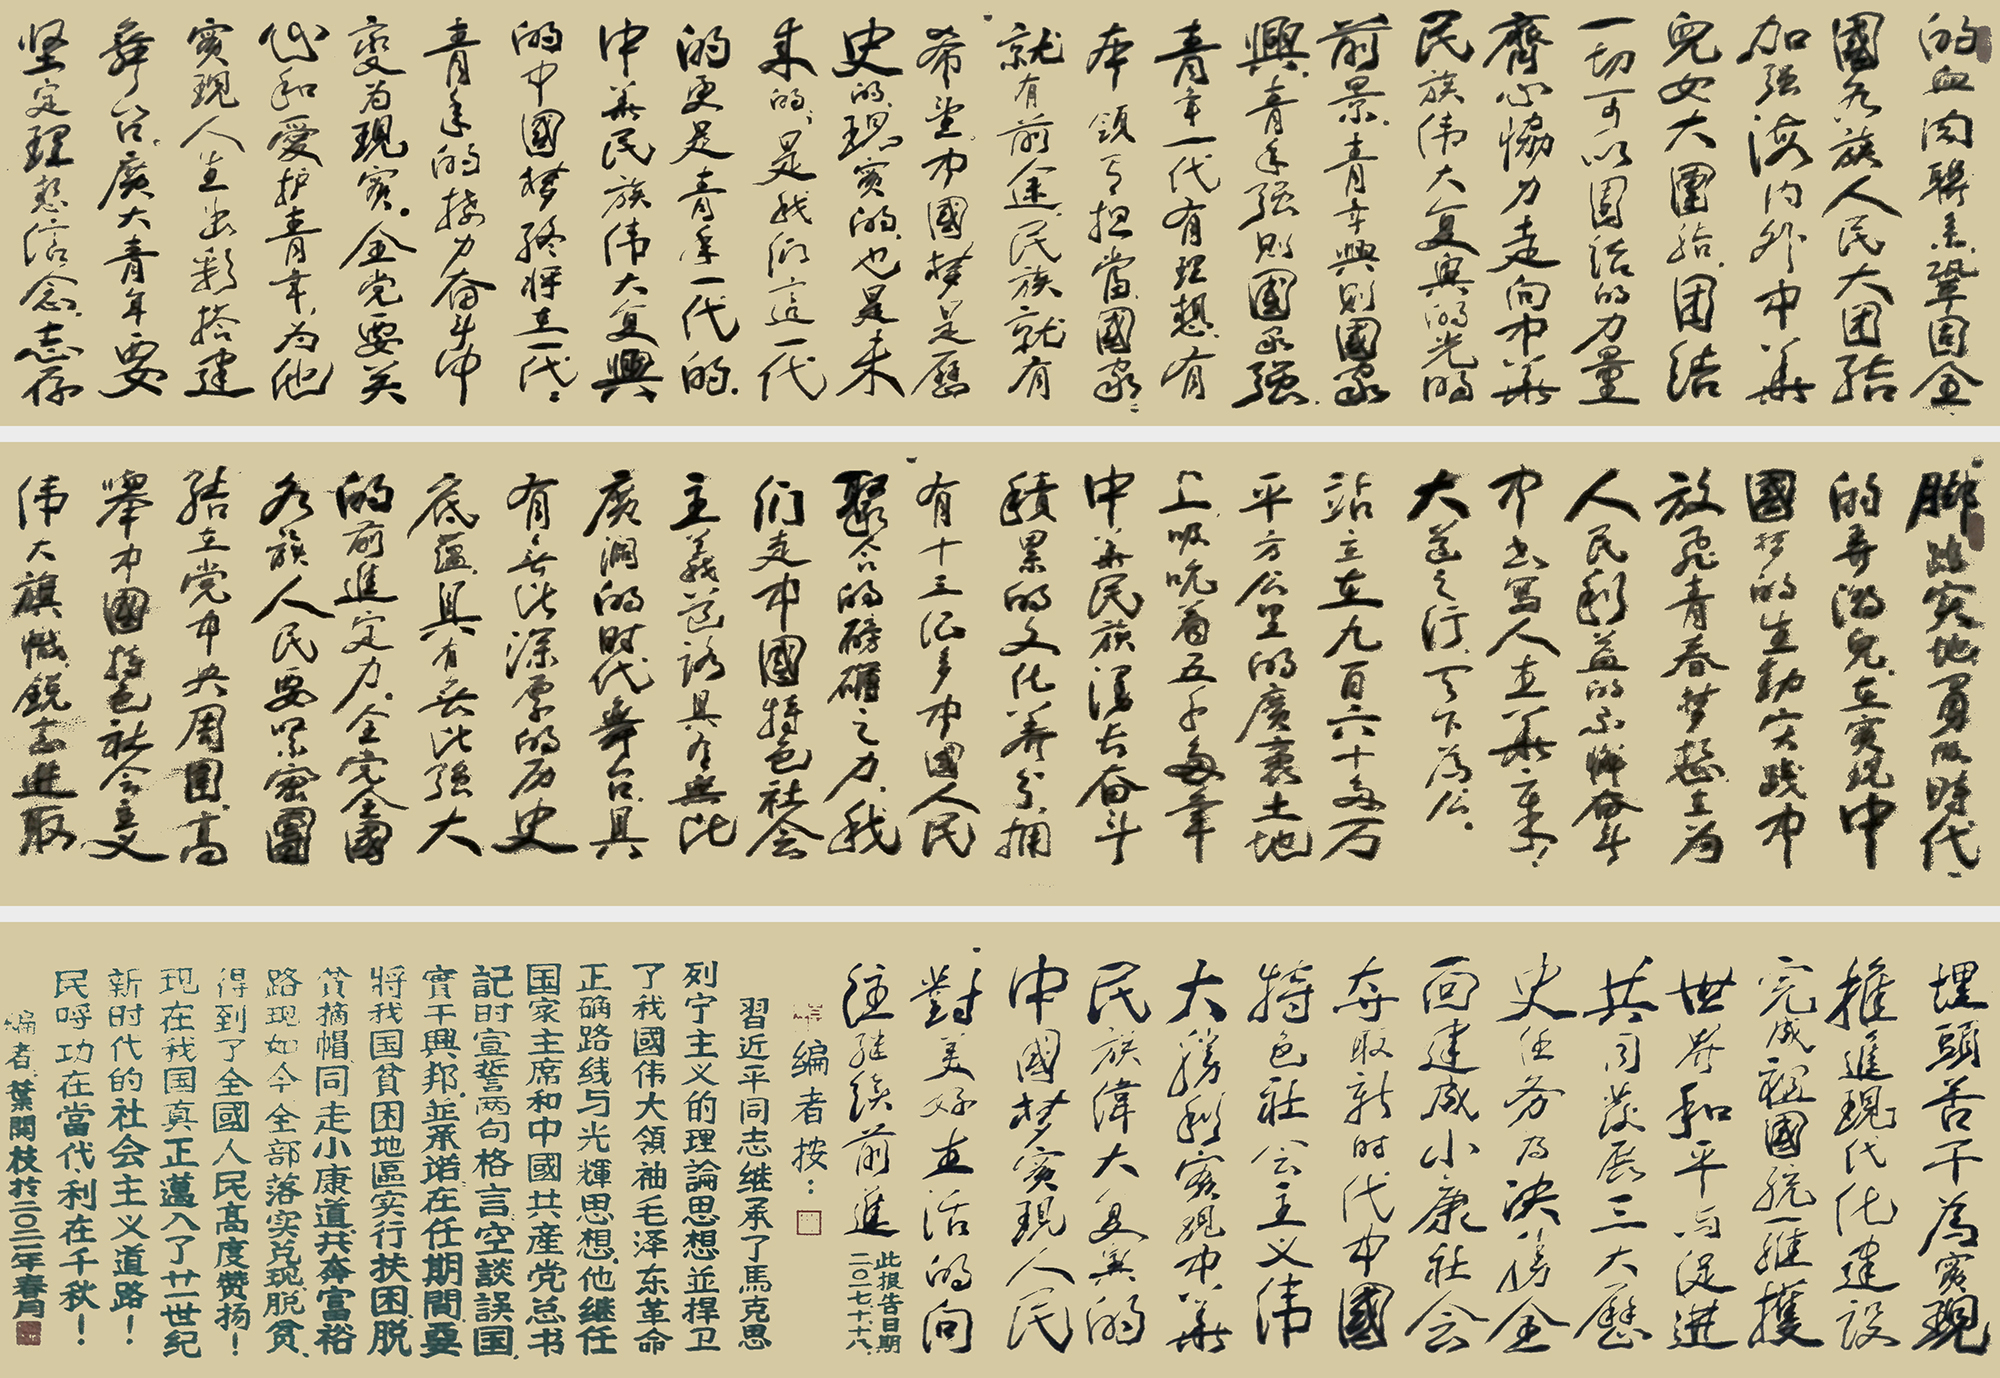 的血肉联系,巩固全
國各族人民大团结
加强海内外中华
兒女大團结,团结
一切可以团结的力量
齊心協力走向中华
民族伟大复興的光明
前景,青年興则國家
興,青年强则國家强.
青年一代有理想,有
本领,有担當,國家:
就有前途,民族就有
希望,中國梦是歷
史的,現實的,也是未
来的;是我们這一代
的更是青年一代的.
中华民族伟大复興
的中國梦終将在一代:
青年的接力奋斗中
变为現實。全党要关
心和爱护青年,为他
實現人生出彩搭建
舞台,廣大青年要
坚定理想信念,志存
脚踏实地勇做時代:
的弄潮兒,在實現中
國梦的生動实践中
放飛青春梦想,在为
人民利益的不懈奋斗
中书写人生华章:
大道之行,天下為公。
站立在九百六十多万
平方公里的廣袤土地
上,吸吮着五千多年
中华民族漫长奋斗
積累的文化养分,拥
有十三亿多中國人民
聚合的磅礴之力,我
们走中國特色社会
主義道路,具有無比
廣闊的时代舞台,具
有無比深厚的历史
底蕴,具有無比强大
的前進定力,全党全國
各族人民要紧密團
结在党中央周圍,高
舉中國特色社会主义
伟大旗幟,锐意進取
埋頭苦干,為實現
推進現代化建設
完成祖國统一,維護
世界和平与促進
共同发展三大歷
史任务,为决勝全
面建成小康社会
夺取新时代中國
特色社会主义伟
大勝利,實現中华
民族偉大复興的
中國梦,實現人民
對美好生活的向
往继续前進
此报告日期
二〇一七.十.十八.
编者按:
習近平同志继承了馬克思
列宁主义的理論思想並捍卫
了我國伟大領袖毛泽东革命
正确路线与光輝思想,他继任
国家主席和中國共産党总书
記时宣誓两句格言,空談誤国,
實干興邦,並承诺在任期間,要
將我国貧困地區实行扶困,脱
貧摘帽,同走小康道,共奔富裕
路現如今全部落实兑现,脱贫,
得到了全國人民高度赞扬!
现在我国真正邁入了廿一世纪
新时代的社会主义道路!
民呼,功在當代,利在千秋!
编者,葉開枝於二〇二一年春月